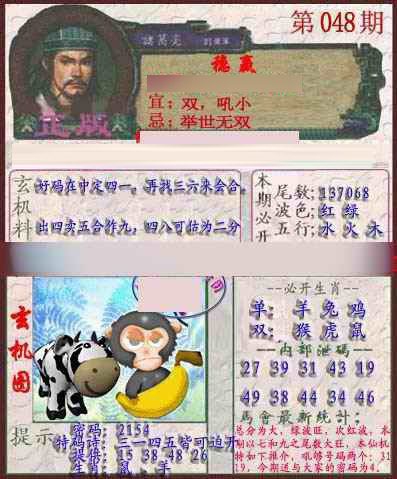 第048期
諸葛亮
德赢
宜：双，吼小
正版
忌：举世无双
玄机料
好码在中定四一。再找三六来会合。
出四卖五合作九，四八可估为二分
本期必开
尾数：137068
波色：红 绿
五行：水 火 木
玄机图
--必开生肖--
单：羊 兔 鸡
双：猴 虎 鼠
--内部泄码--
27 39 31 43 19
49 38 44 34 46
馬會最新统计：
总分为大，绿波旺，次红波，本期以七和九之尾数大旺，本仙机特如下推介，吼够号码两个：3119，今期送与大家的密码为4.
提示
密码：2154
特码诗：三一四五皆可迫开
提携：15 38 48 26
生肖：鼠、羊